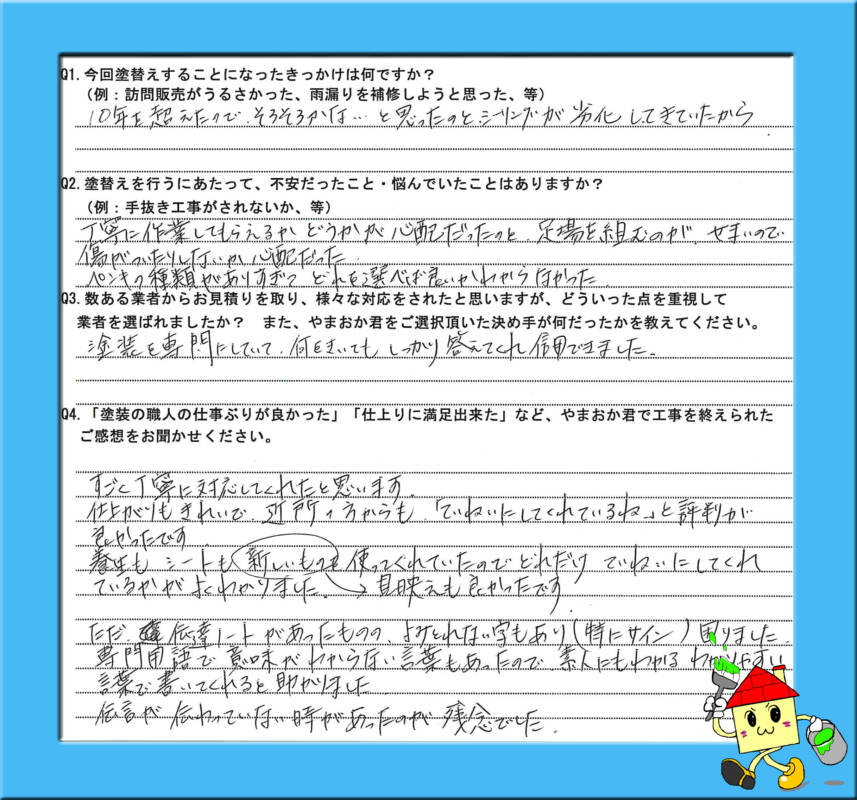 Q1. 今回塗替えすることになったきっかけは何ですか？
（例：訪問販売がうるさかった、雨漏りを補修しようと思った、等）
10年を超えたので、そろそろかな…と思ったのとシーリングが劣化してきていたから
Q2. 塗替えを行うにあたって、不安だったこと・悩んでいたことはありますか？
（例：手抜き工事がされないか、等）
丁寧に作業してもらえるかどうかが心配だったのと、足場を組むのが、せまいので
傷がついたりしないか心配だった。
ペンキの種類がありすぎて どれを選べば良いかわからなかった。
Q3. 数ある業者からお見積りを取り、様々な対応をされたと思いますが、どういった点を重視して
業者を選ばれましたか？　また、やまおか君をご選択頂いた決め手が何だったかを教えてください。
塗装を専門にしていて、何をきいてもしっかり答えてくれ信用できました。
Q4. 「塗装の職人の仕事ぶりが良かった」「仕上りに満足出来た」など、やまおか君で工事を終えられた
ご感想をお聞かせください。
すごく丁寧に対応してくれたと思います。
仕上がりもきれいで、近所の方からも、「ていねいにしてくれているね」と評判が
良かったです
養生も シートも 新しいものを 使ってくれていたのでどれだけ ていねいにしてくれ
ているかがよくわかりました。→見映えも良かったです
ただ、伝達ノートがあったものの、よみとれない字もあり（特にサイン）困りました。
専門用語で意味がわからない言葉もあったので 素人にもわかるわかりやすい
言葉で書いてくれると助かりました
伝言が伝わっていない時があったのが残念でした。